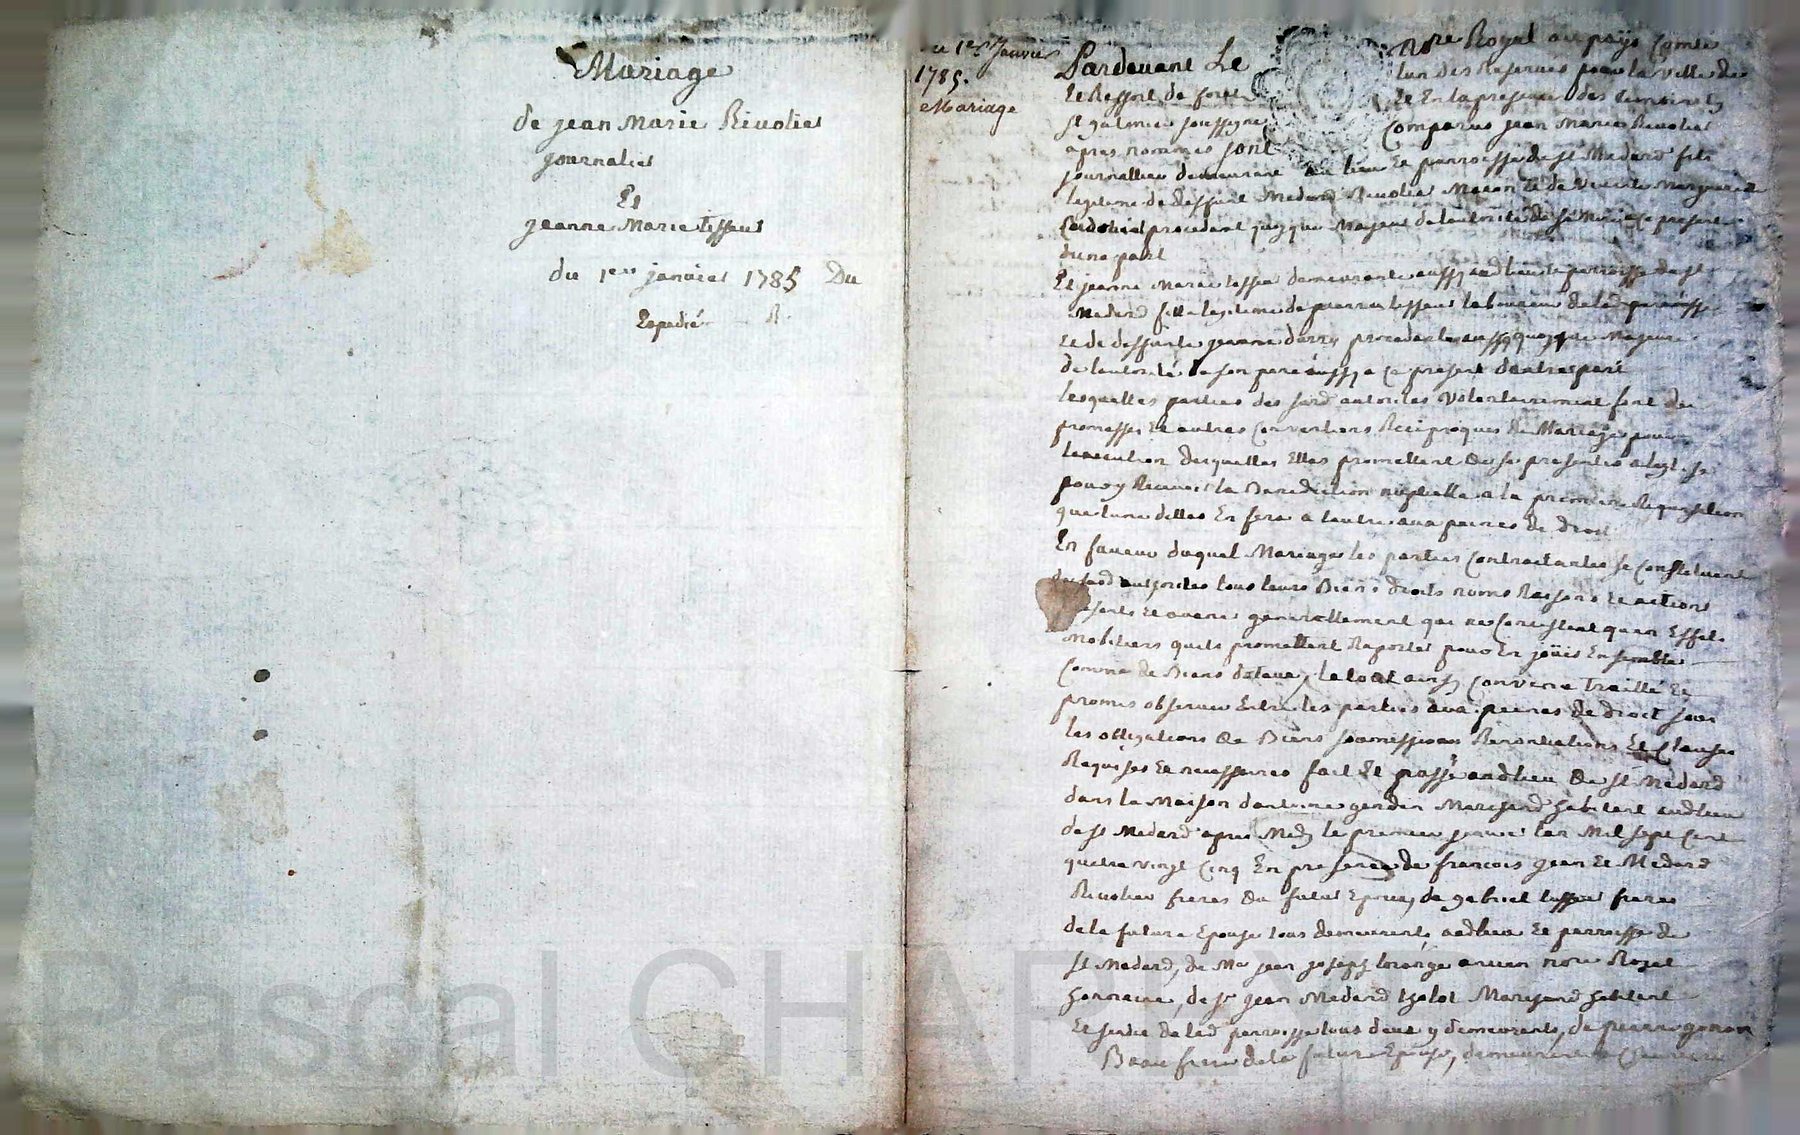 Mariage
de jean Marie Rivolier
journalier
Et
jeanne Marie tisseur
du 1er janvier 1785 Du
Expedié R.
Le 1er Janvier
1785.
Mariage
Pardevant Le Nore Royal au pays Comte
Et Ressort de forêt lun des Reservés pour la ville de
st galmier soussigné Et En la presence des temoins cy
apres nommés sont Comparus jean Marie Rivolier
journallier demeurant au lieu Et parroisse de st Medard fils
legitime de deffunt Medard Rivolier Maçon Et de vivante Marguerite
procedant quoyque Majeur de lautorité de sa Mere a ce presente
dune part
Et jeanne Marie tisseur demeurante aussy audlieu Et parroisse de st
Medard fille legitime de pierre tisseur laboureur de lad parroisse
Et de deffunte jeanne procedante aussy quoyque Majeure
de lautorité de son pere aussy a ce present dautre part
lesquelles parties des susd autorités volontairement font les
promesses Et autres Conventions Reciproques de Mariage pour
lexecution desquelles Elles promettent de se presenter a leglise
pour y Recevoir la Benediction nuptialle a la premiere Requisition
que lune delles En fera a lautre aux peines de droit
En faveur duquel Mariage les parties Contractantes se Constituent
des susd authorités tous leurs Biens droits noms Raisons Et actions
presents Et avenir generallement qui ne Consistent quen Effets
Mobiliers quils promettent Raporter pour En joüir Ensemble
Comme de Biens dotaux, le tout ainsy Convenu traitté Et
promis observer Entre les parties aux peines de droit sous
les obligations de Biens soumissions Renontiations Et Clauses
Requises Et necessaires fait Et passé audlieu de st Medard
dans la Maison dantoine Marchand habitant audlieu
de st Medard apres Midy le premier janvier lan Mil sept Cent
quatre vingt Cinq En presence de francois jean Et Medard
Rivolier freres du futur Epoux, de gabriel tisseur frere
de la future Epouse tous demeurants audlieu Et parroisse de
st Medard, de Me jean joseph ancien nore Royal
honnoraire, de sr jean Medard tholot Marchand habitant
Et de lad parroisse tous deux y demeurants, de pierre
Beau frere de la future Epouse, demeurant a